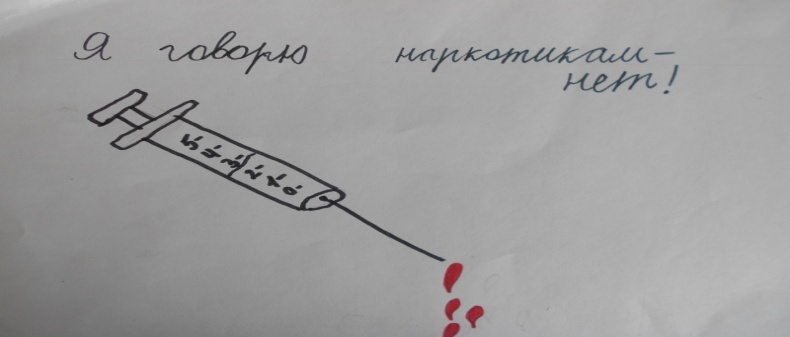 Я говорю наркотикам-
нет!
5 4 3 2 1 0